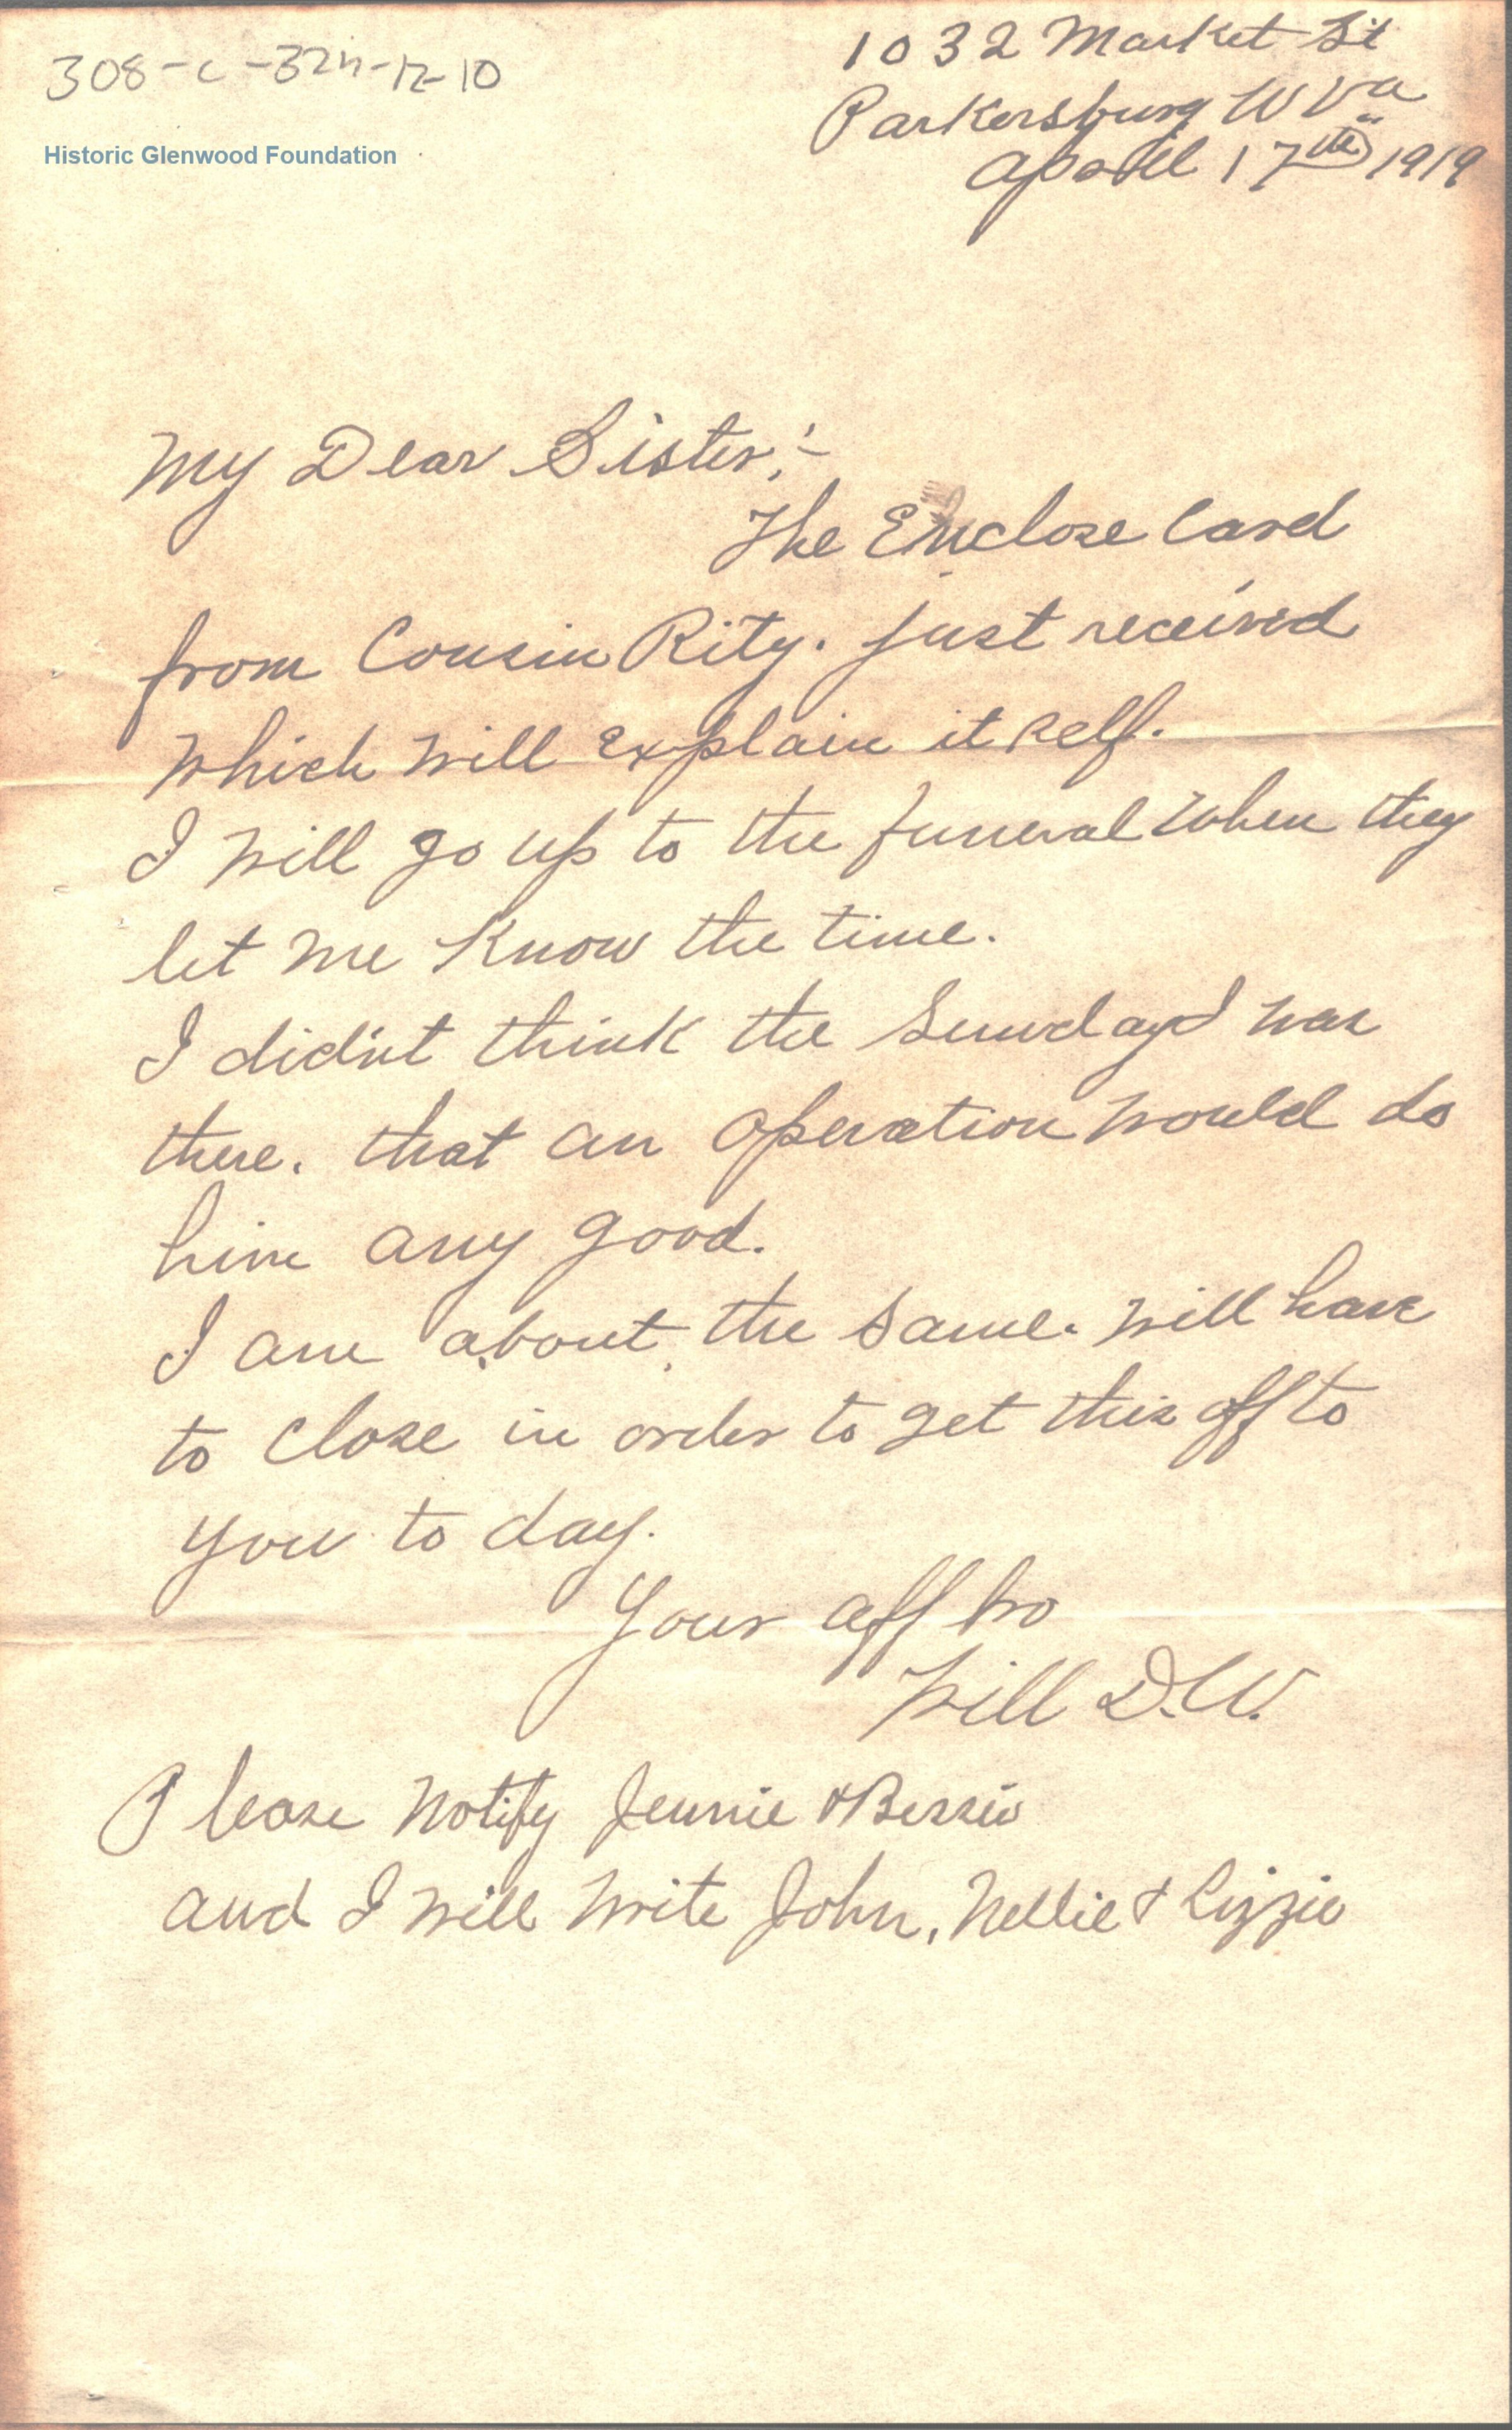 308-C-32n-12-10
Historic Glenwood Foundation
1032 Market St
Parkersburg W Va
April 17th 1919
My Dear Sister:-
The Enclose Card
from Cousin Rity. just received
which will explain it self.
I will go up to the funeral when they
let me know the time.
I did'nt think the Sunday I was
there. that an operation would do
him any good.
I am about the same. will have
to close in order to get this off to
you to day.
Your aff bro
Will D.W.
Please Notify Jennie & Bessie
and I will write John, Nellie & Lizzie